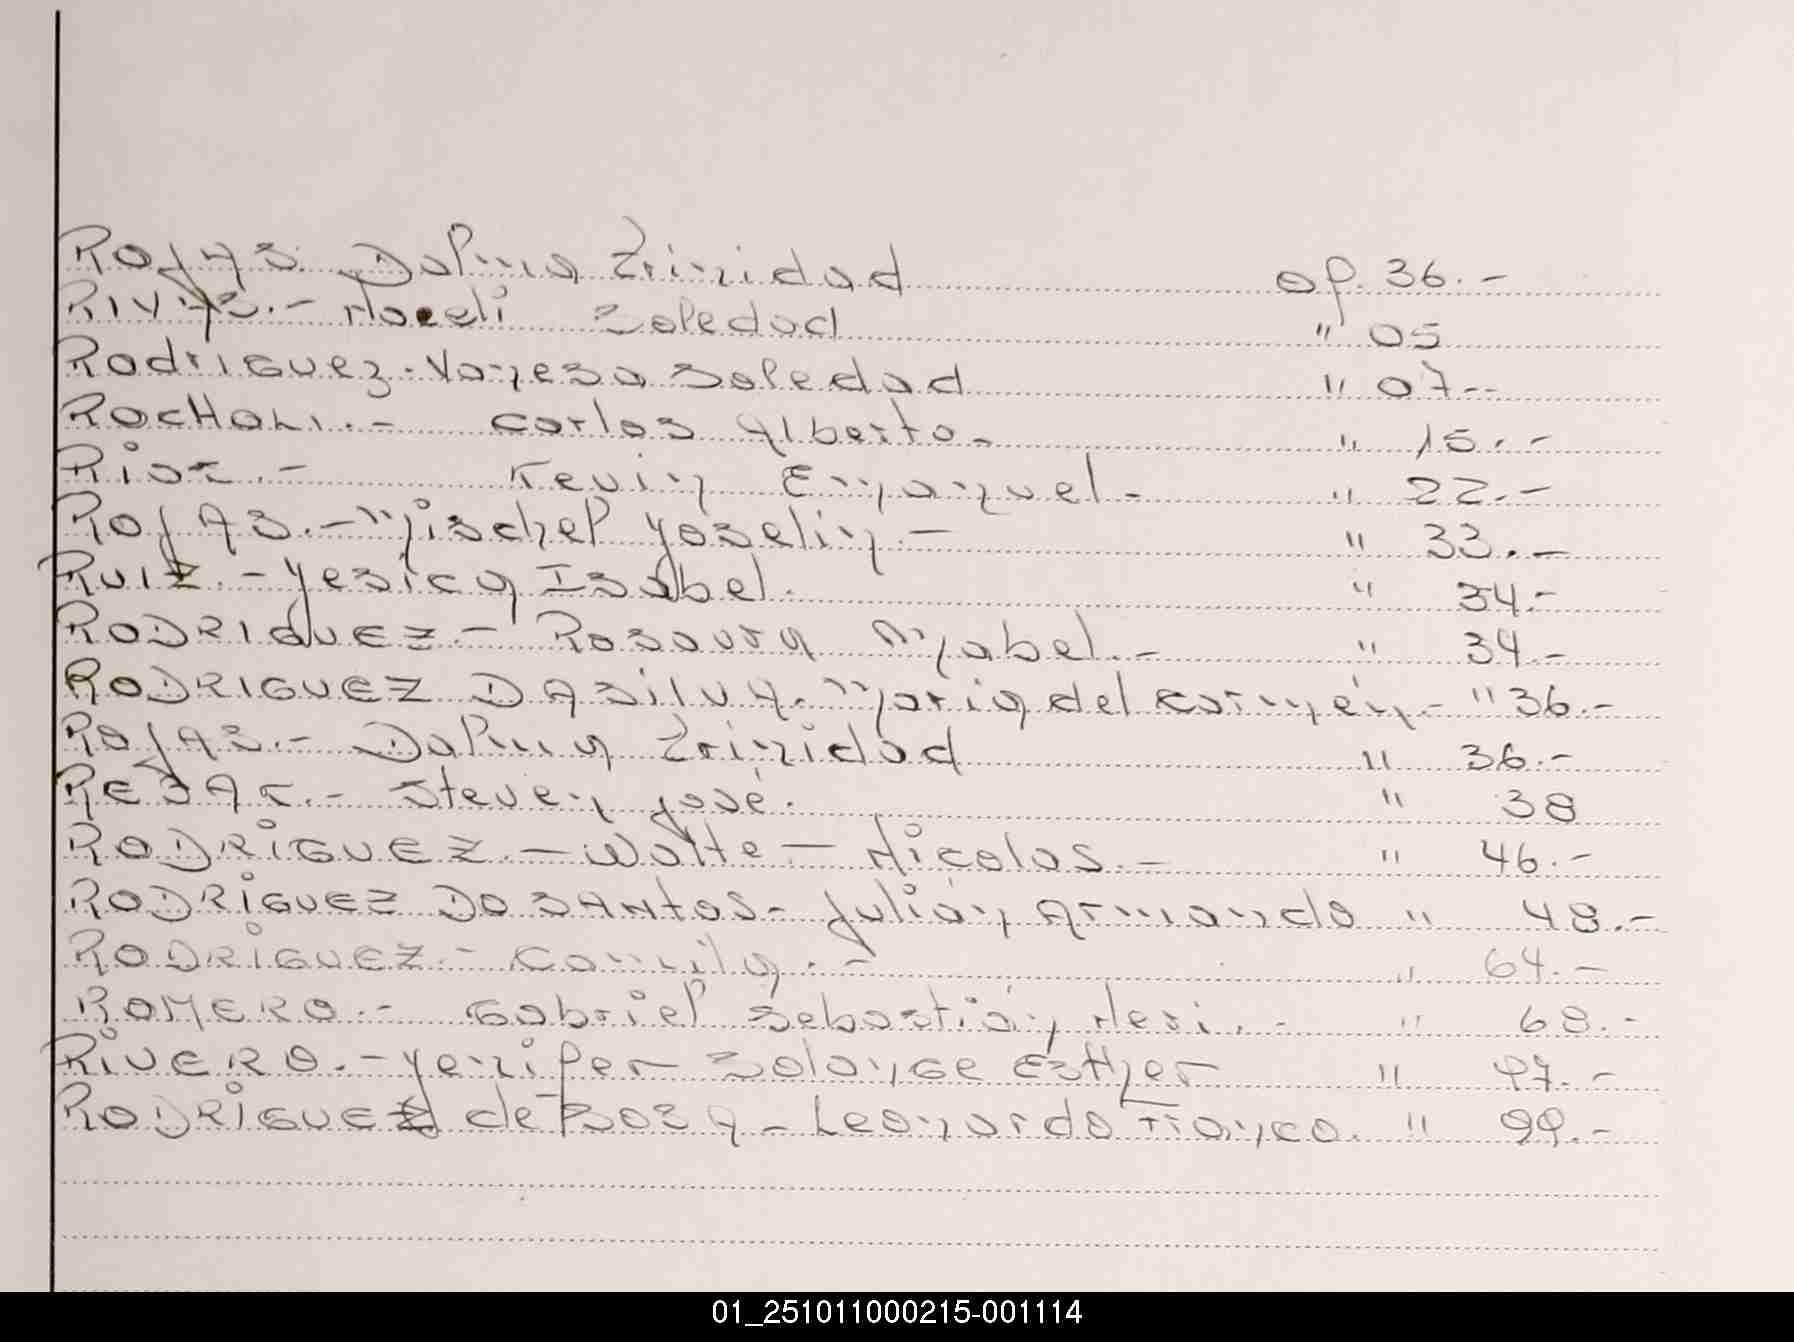 ROJAS Dalma Trinidad of. 36.-
RIVAS.- Noeli Soledad " 05
Rodriguez. Vanesa Soledad " 07--
ROCHONI.- Carlos Alberto.- " 15.-
Rios.- Kevin Emanuel.- " 22.-
ROJAS.- Mischel Yoselin.- " 33.-
RUIZ.- Yesica Isabel. " 34.-
RODRIGUEZ.- Rosaura Mabel.- " 34.-
RODRIGUEZ DASILVA. Maria del Carmén.- " 36.-
ROJAS.- Dalma Trinidad " 36.-
Steven José. " 38
RODRIGUEZ.- Walte - Nicolas.- " 46.-
RODRIGUEZ DOSANTOS- Julián Armando " 48.-
RODRIGUEZ.- Camila.- " 64.-
ROMERO.- Gabriel Sebastián Neri.- " 68.-
RIVERO.- Yenifer Solange Esther " 97.-
RODRIGUEZ de SOSA - Leonardo Franco. " 99.-
01_251011000215-001114